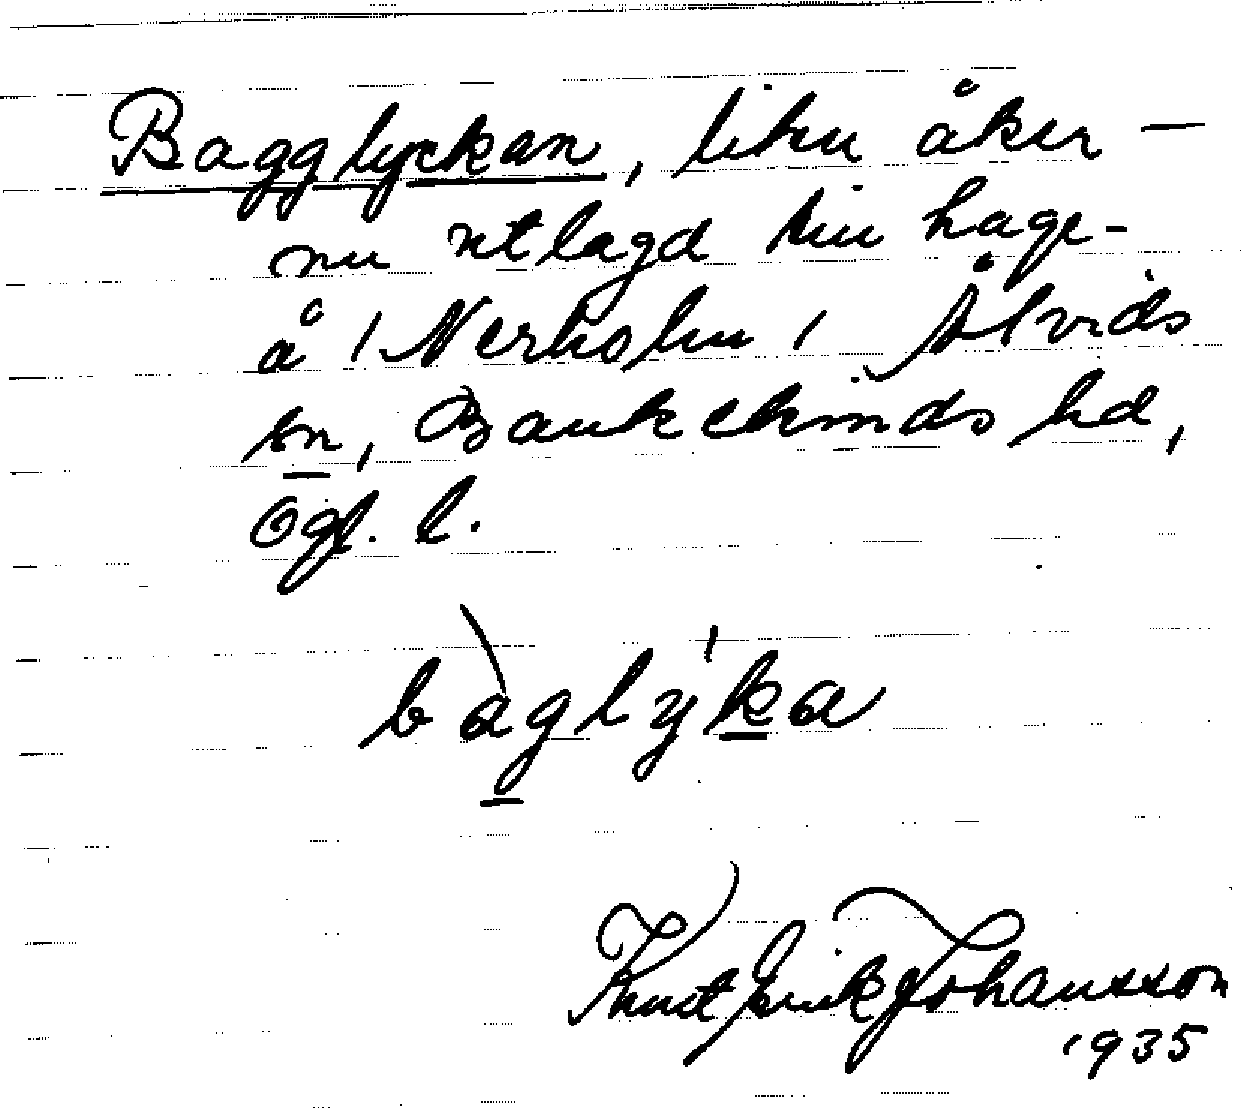 Bagglyckan, liten åker –
nu utlagd till hage –
å 1 Nerholm, Ålvids
sn, Bankekinds hd,
Ögl. l.
bàglýka
Knut Erik Johansson
1935